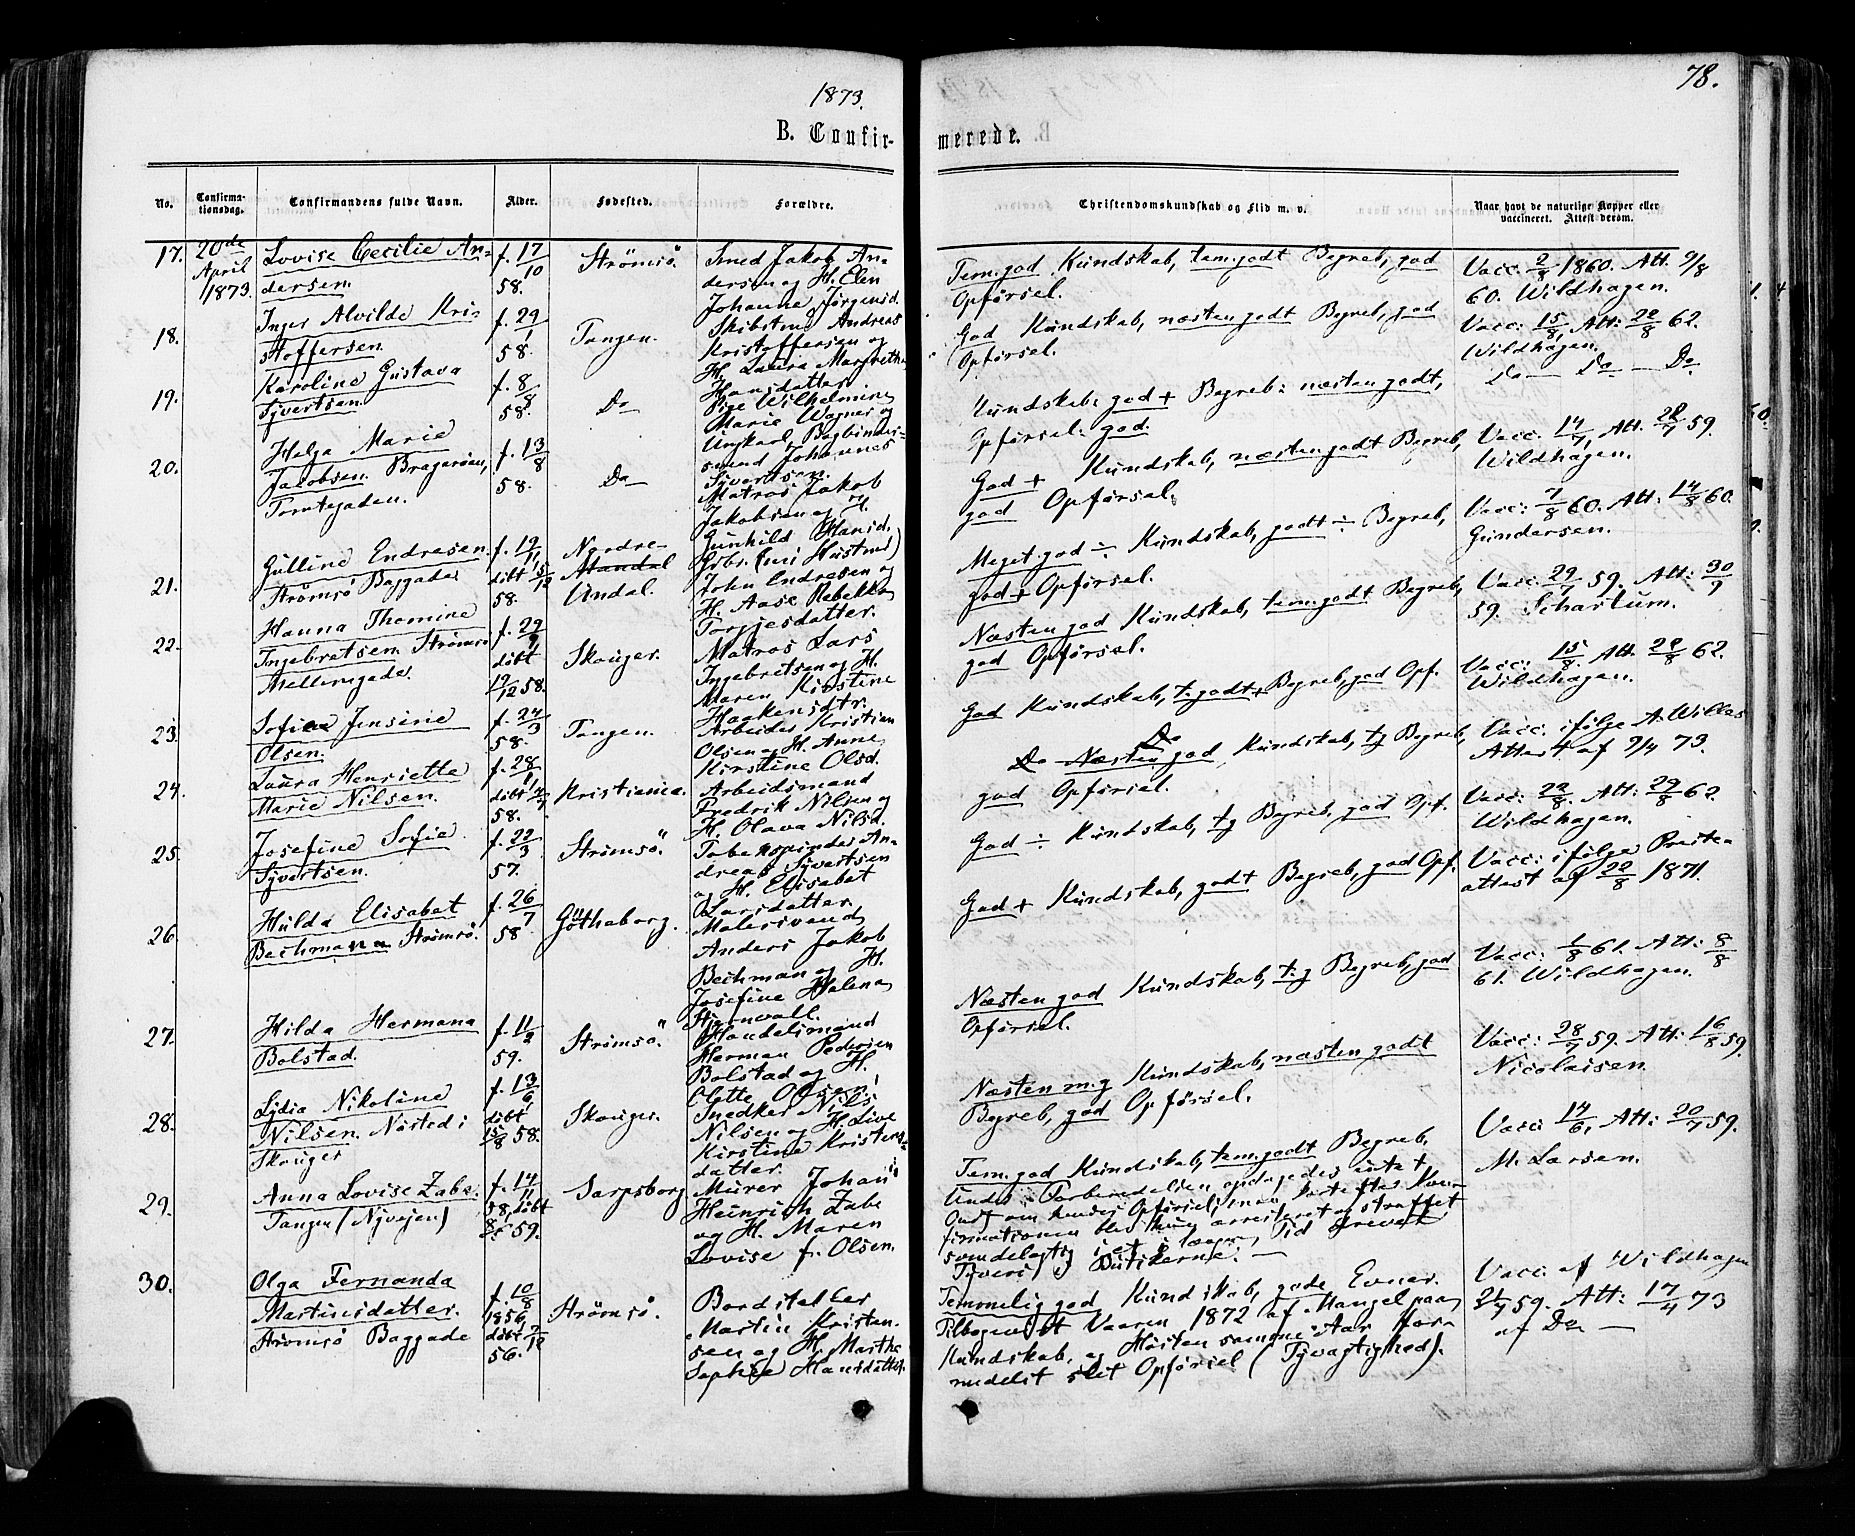 1873.
78.
B. Confir-
merede.
No.
Confirma-
tionsdag.
Confirmandens fulde Navn.
Alder.
Fødested.
Forældre.
Christendomskundskab og Flid m. v.
Naar havt de naturlige Kopper eller
vaccineret. Attest derom.
17.
20de
April
1873.
Lovise Cecilie An-
dersen.
f. 17/10
58.
Strömsö.
Smed Jakob An-
dersen og H. Elen
Johanne Jörgensd.
Tem. god Kundskab, tem. godt Begreb, god
Opförsel.
Vacc. 2/8 1860. Att. 9/8
60. Wildhagen.
18.
Inger Alvilde Kri-
stoffersen.
f. 29/1
58.
Tangen.
Skibstmd Andreas
Kristoffersen og
H. Laura Margrethe
Hansdatter.
God Kundskab, næsten godt Begreb, god
Opförsel.
Vacc: 15/8, Att: 22/8 62.
Wildhagen.
19.
Karoline Gustava
Syvertsen.
f. 8/8
58.
Do
Pige Wilhelmine
Marie Wagner og
Ungkarl, Bogbinder-
svend Johannes
Syvertsen.
Kundskab: god + Begreb: næsten godt,
Opförsel: god.
Do — Do — Do
20.
Helga Marie
Jacobsen. Bragernes,
Torvtegaden.
f. 13/8
58.
Do
Matros Jakob
Jakobsen og H.
Gunhild Hansd.
God + Kundskab, næsten godt Begreb,
god Opförsel.
Vacc. 14/7, Att. 28/7 59.
Wildhagen.
21.
Gulline Endresen.
Strömsö Baggade
f. 19/11
döbt 5/12
58.
Nordre-
Mandal
Undal.
Gbr. (nu Husmd)
John Endresen og
H. Aase Rebekka
Torjesdatter.
Meget god ÷ Kundskab, godt ÷ Begreb,
god + Opförsel.
Vacc: 7/8 60. Att: 14/8 60.
Gundersen.
22.
Hanna Thomine
Ingebretsen. Strömsö
Mellemgade.
f. 29/9
döbt
19/12 58.
Skouger.
Matros Lars
Ingebretsen og H.
Maren Kirstine
Haakensdtr.
Næsten god Kundskab, tem. godt Begreb,
god Opförsel.
Vacc: 29/7 59. Att: 30/7
59. Schartum.
23.
Sofie Jensine
Olsen.
f. 24/3
58.
Tangen.
Arbeider Kristian
Olsen og H. Anne
Kirstine Olsd.
God Kundskab, t. godt + Begreb, god Opf.
Vacc: 15/8. Att. 22/8 62.
Wildhagen.
24.
Laura Henriette
Marie Nilsen.
f. 28/1
döbt 4/4
58.
Kristiania.
Arbeidsmand
Fredrik Nilsen og
H. Olava Nilsd.
Do
Do Næsten god Kundskab, tg Begreb,
god Opförsel.
Vacc. ifølge A. Willes
Attest af 9/4 73.
25.
Josefine Sofie
Syvertsen.
f. 22/3
57.
Strömsö.
Tobakspinder An-
dreas Syvertsen
og H. Elisabet
Larsdatter.
God ÷ Kundskab, tg Begreb, god Opf.
Vacc: 22/8. Att: 29/8 62.
Wildhagen.
26.
Hulda Elisabet
Bechmann Strömsö.
f. 26/7
58
Götheborg.
Malersvend
Anders Jakob
Bechman og H.
Josefine Helena
Stjernvall.
God + Kundskab, godt Begreb, god Opf.
Vacc: ifølge Præste-
attest af 22/8 1871.
27.
Hilda Hermana
Bolstad.
f. 11/2
59.
Strömsö.
Handelsmand
Herman Pedersen
Bolstad og H.
Olette Olsen.
Næsten god Kundskab, t. g Begreb, god
Opförsel.
Vacc: 1/8 61. Att: 8/8
61. Wildhagen.
28.
Lydia Nikoline
Nilsen. Nösted i
Skouger
f. 13/6
döbt
15/8 58.
Skouger.
Snedker Nils
Nilsen og H. Live
Kirstine Kristens-
datter.
Næsten m. g Kundskab, næsten godt
Begreb, god Opförsel.
Vacc: 28/7 59. Att: 16/8 59.
Nicolaisen.
29.
Anna Lovise Zabe.
Tangen (Nyvejen)
f. 14/11
58, döbt
59.
Sarpsborg
Murer Johan
Heinrich Zabe
og H. Maren
Lovise f. Olsen.
Tem. god Kundskab, tem. godt Begreb.
Under Forberedelsen opdagedes intet
Ondt om hendes Opførsel, men kort efter Kon-
firmationen blev hun arresteret og straffet
som delagtig i et i længere Tid drevet
Tyveri i Butikerne. —
Vacc 14/6, Att: 20/7 59.
M. Larsen.
30.
Olga Fernanda
Martinsdatter.
Strömsö Baggade
f. 10/8
1856,
döbt 7/12
56.
Strömsö.
Bordstabler
Martin Kristen-
sen og H. Marthe
Sophie Hansdatter.
Temmelig god Kundskab, gode Evner.
Tilbagevist Vaaren 1872 af Mangel paa
Kundskab, og Hösten samme Aar for-
medelst slet Opförsel (Tyvagtighed).
Vacc. af Wildhagen
21/7 59. Att: 17/4 73
af Do —